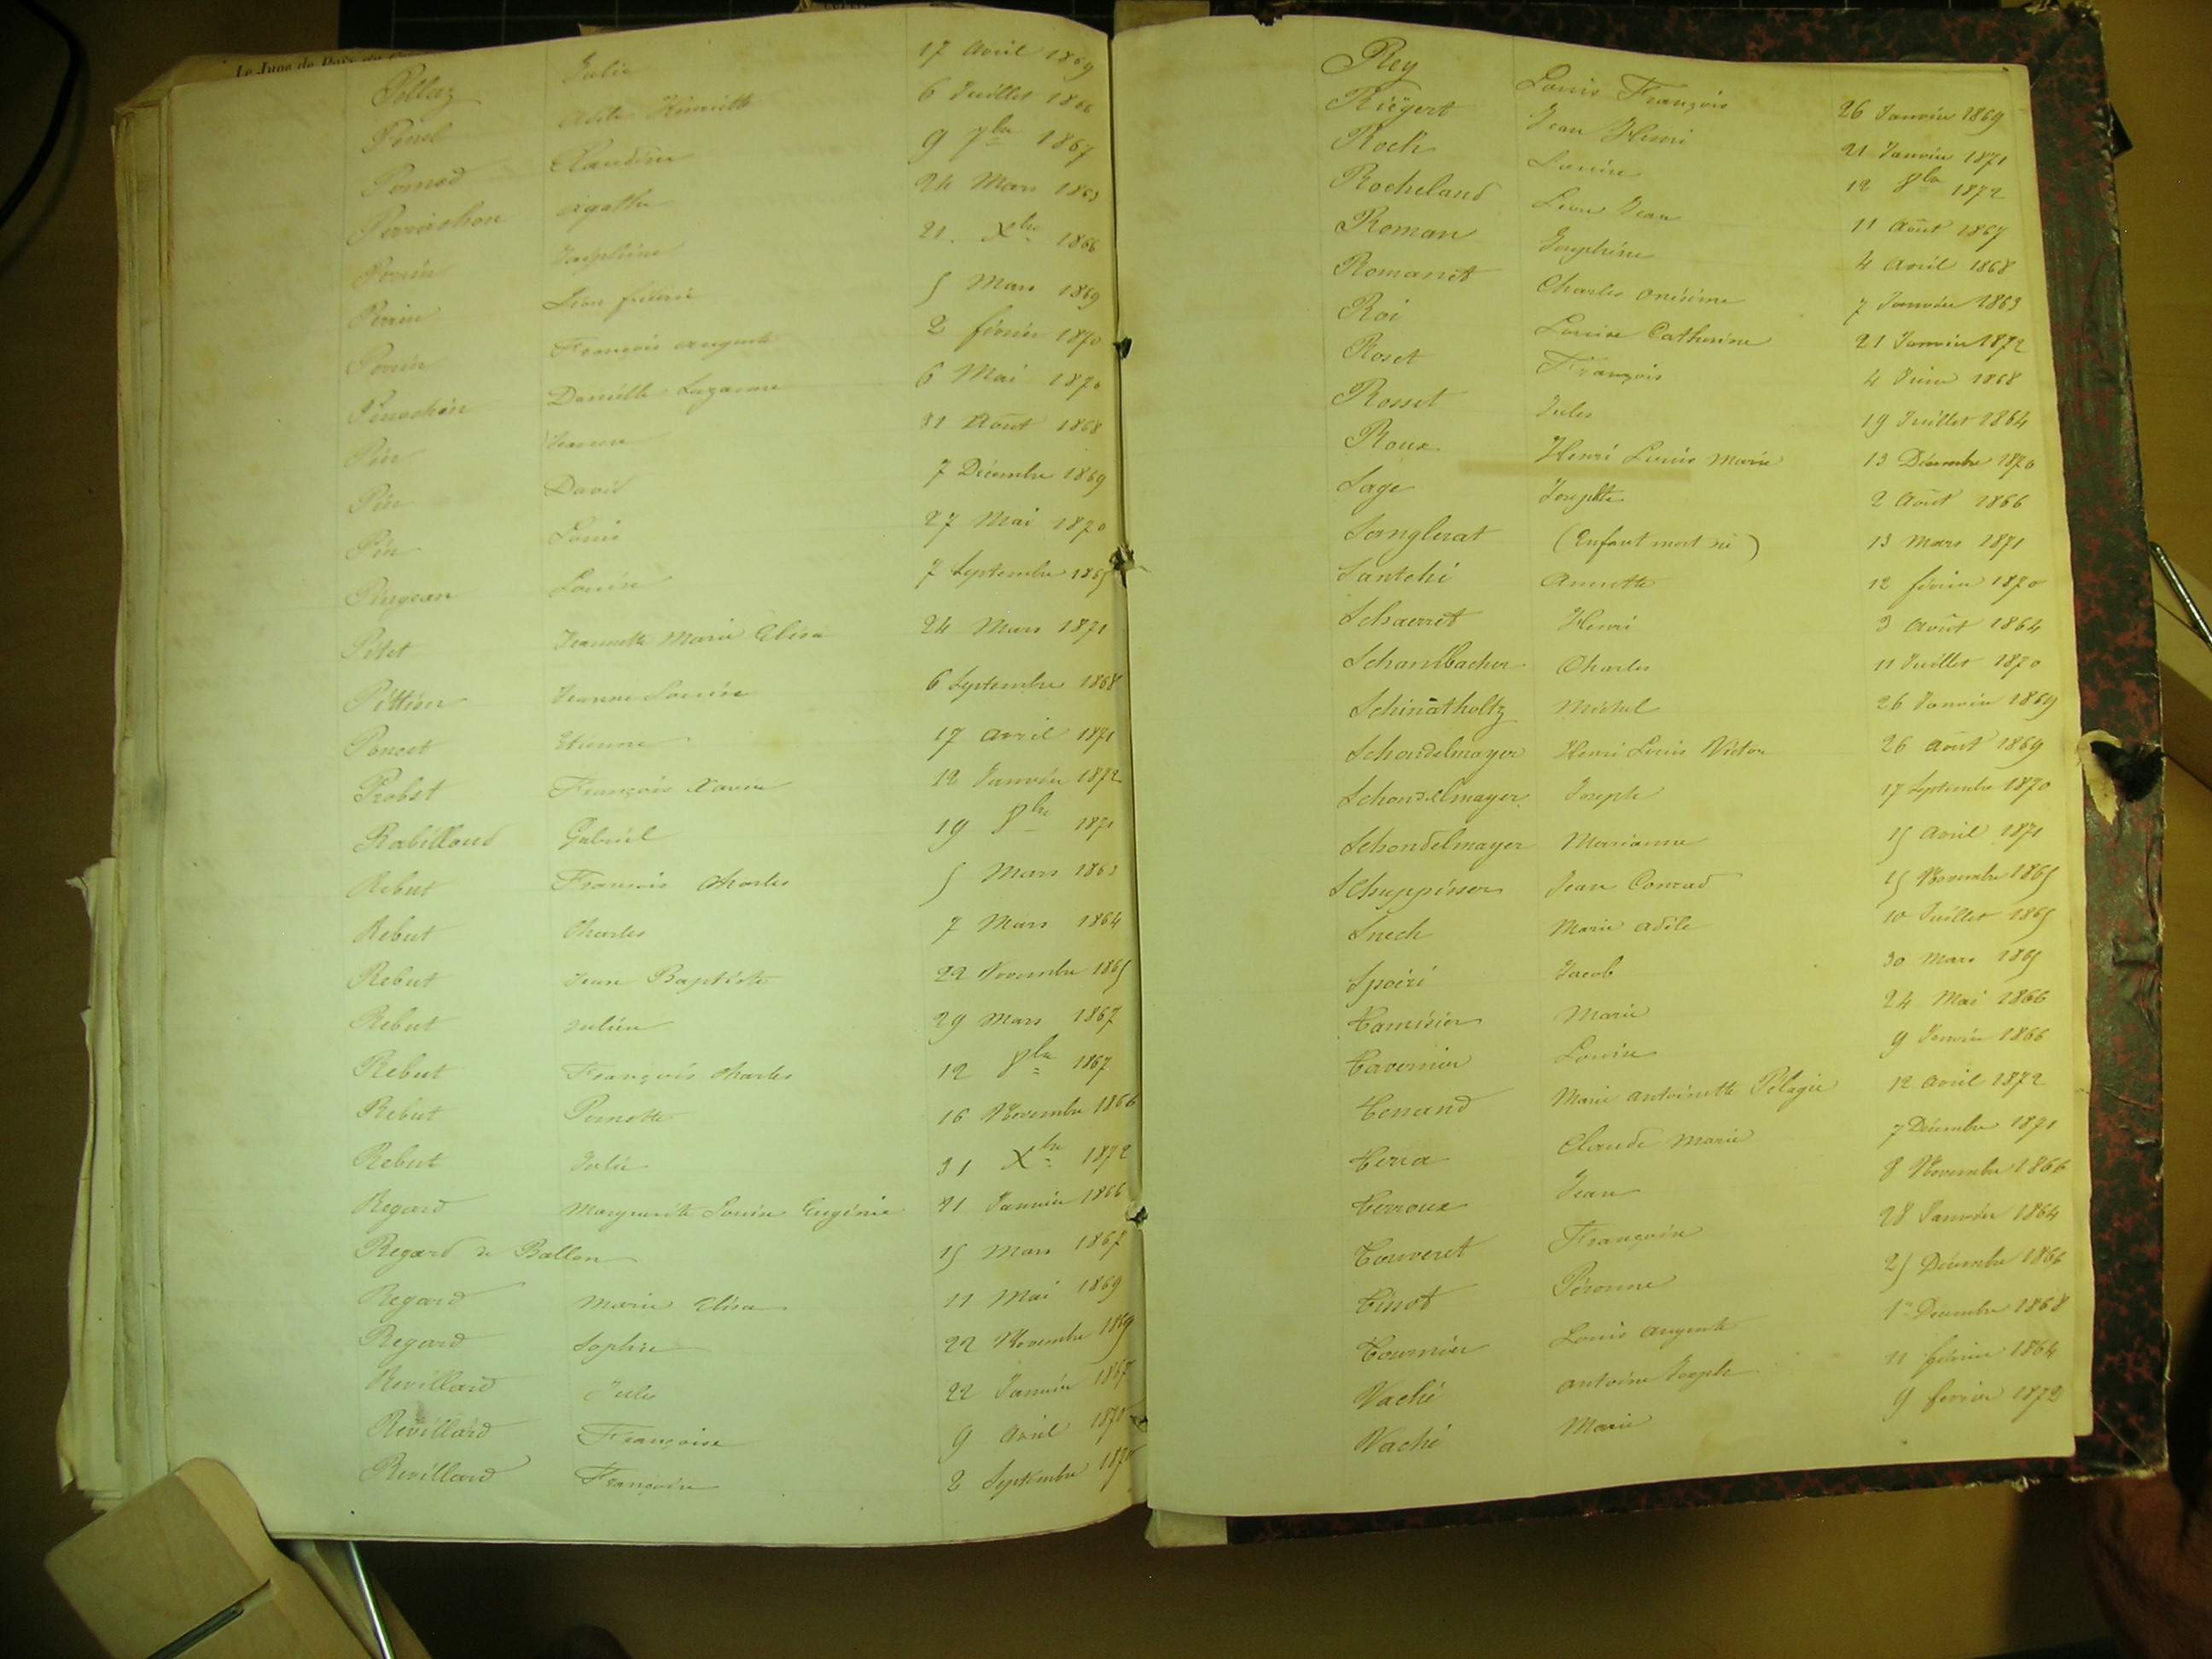 Le Juge de Paix
Pellaz Julie 17 Avril 1869
Penel Adèle Henriette 6 Juillet 1866
Pernod Claudine 9 7bre 1867
Perrichon Agathe 24 Mars 1863
Perrin Joséphine 21 Xbre 1866
Perrin 5 Mars 1869
Perrin François Auguste 2 février 1870
Perrochin Danielle Lazarine 6 Mai 1870
Pin 31 Août 1868
Pin David 7 Décembre 1869
Pin Louis 27 Mai 1870
Pingeon Louise 7 Septembre 1865
Pitet Jeannette Marie Elisa 24 Mars 1871
Pittier Jeanne Louise 6 Septembre 1868
Poncet Etienne 17 avril 1871
Probst François Xavier 12 Janvier 1872
Rabilloud Gabriel 19 8bre 1871
Rebut Francois Charles 5 Mars 1863
Rebut Charles 7 Mars 1864
Rebut Jean Baptiste 22 Novembre 1865
Rebut Julien 29 Mars 1867
Rebut François Charles 12 8bre 1867
Rebut Pernette 16 Novembre 1866
Rebut Julie 31 Xbre 1872
Regard Marguerite Louise Eugénie 31 Janvier 1866
Regard de Ballon 15 Mars 1867
Regard Marie Elisa 11 Mai 1869
Regard Sophie 22 Novembre 1869
Revillard Jules 22 Janvier 1867
Revillard Françoise 9 Avril 1870
Revillard Françoise 2 Septembre 1870
Rey Louis François 26 Janvier 1869
Riégert Jean Henri 21 Janvier 1871
Roch Louise 12 8bre 1872
Rocheland Léon Jean 11 Août 1867
Roman Joséphine 4 Avril 1868
Romanet Charles Onésime 7 Janvier 1863
Roi Louise Catherine 21 Janvier 1872
Roset François 4 Juin 1868
Rosset Jules 19 Juillet 1864
Roux Henri Louis Marie 13 Décembre 1870
Sage Josephte 2 Août 1866
Sanglerat (Enfant mort né) 13 Mars 1871
Santchi Annette 12 février 1870
Schaerret Henri 3 Août 1864
Schanlbacher Charles 11 Juillet 1870
Schinatholtz Michel 26 Janvier 1869
Schondelmayer Henri Louis Victor 26 août 1869
Schondelmayer Joseph 17 Septembre 1870
Schondelmayer Marianne 15 Avril 1871
Schuppisser Jean Conrad 15 Novembre 1865
Snech Marie Adèle 10 Juillet 1865
Spoïri Jacob 30 Mars 1865
Tamisier Marie 24 Mai 1866
Tavernier Louise 9 Janvier 1866
Tenand Marie Antoinette Pélagie 12 Avril 1872
Terra Claude Marie 7 Décembre 1871
Terroux Jean 8 Novembre 1866
Touveret Françoise 28 Janvier 1864
Tissot Péronne 25 Décembre 1866
Tournier Louis Auguste 1er Décembre 1868
Vaché Antoine Joseph 11 février 1864
Vaché Marie 9 fevrier 1872